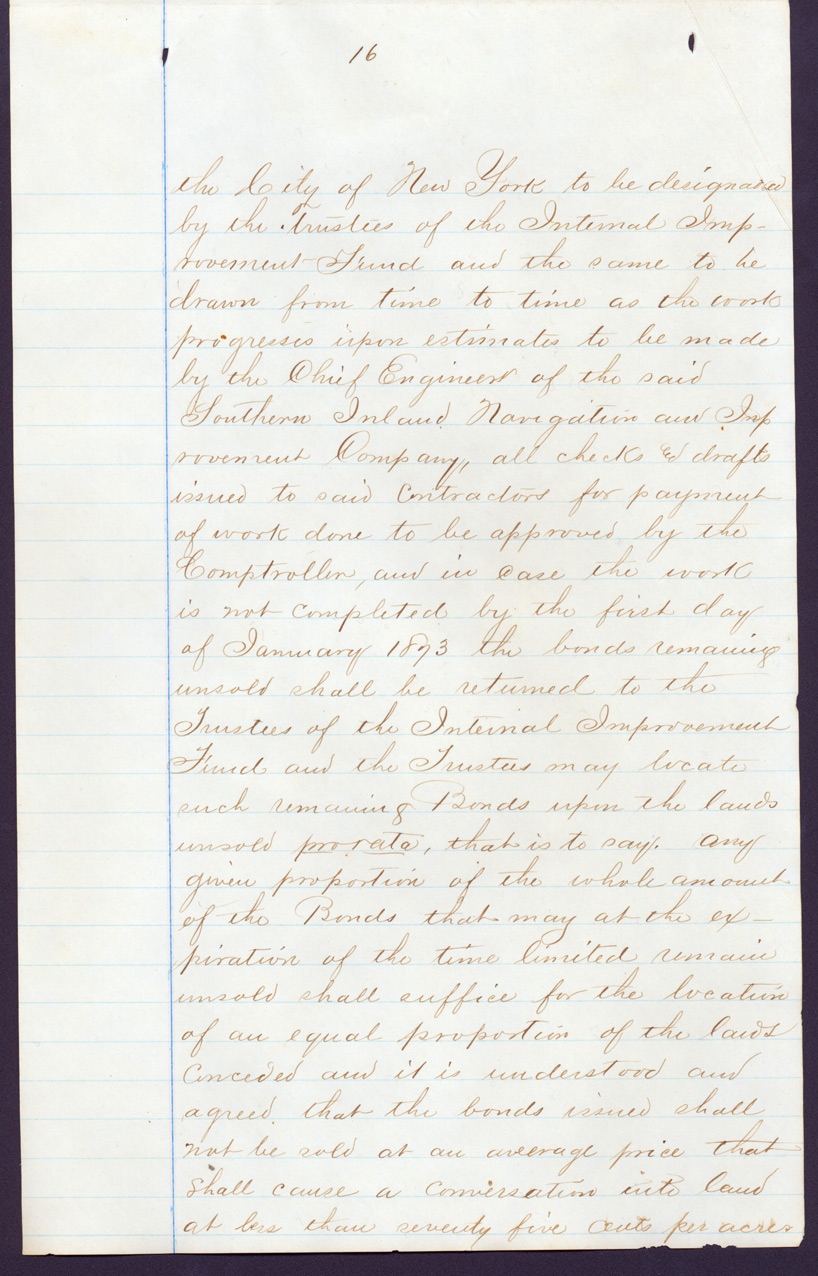 16
the City of New York to be designated
by the Trustees of the Internal Imp-
rovement Fund and the same to be
drawn from time to time as the work
progresses upon estimates to be made
by the Chief Engineer of the said
Southern Inland Navigation and Imp
rovement Company, all checks & drafts
issued to said Contractors for payment
of work done to be approved by the
Comptroller, and in case the work
is not completed by the first day
of January 1873 the bonds remaining
unsold shall be returned to the
Trustees of the Internal Improvement
Fund and the Trustees may locate
such remaining Bonds upon the lands
unsold prorata, that is to say. any
given proportion of the whole amount
of the Bonds that may at the ex-
piration of the time limited remain
unsold shall suffice for the location
of an equal proportion of the lands
Conceded and it is understood and
agreed that the bonds issued shall
not be sold at an average price that
shall cause a conversation into land
at less than seventy five cents per acre